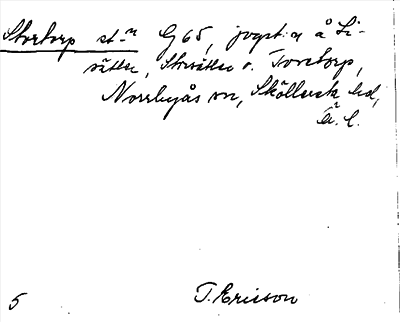 Stortorp st-n G65, jvgst:n å Li-
sätter, Storsätter o. Torstorp,
Norrbyås sn, Sköllersta hd,
Ör. l.
T. Ericson
5